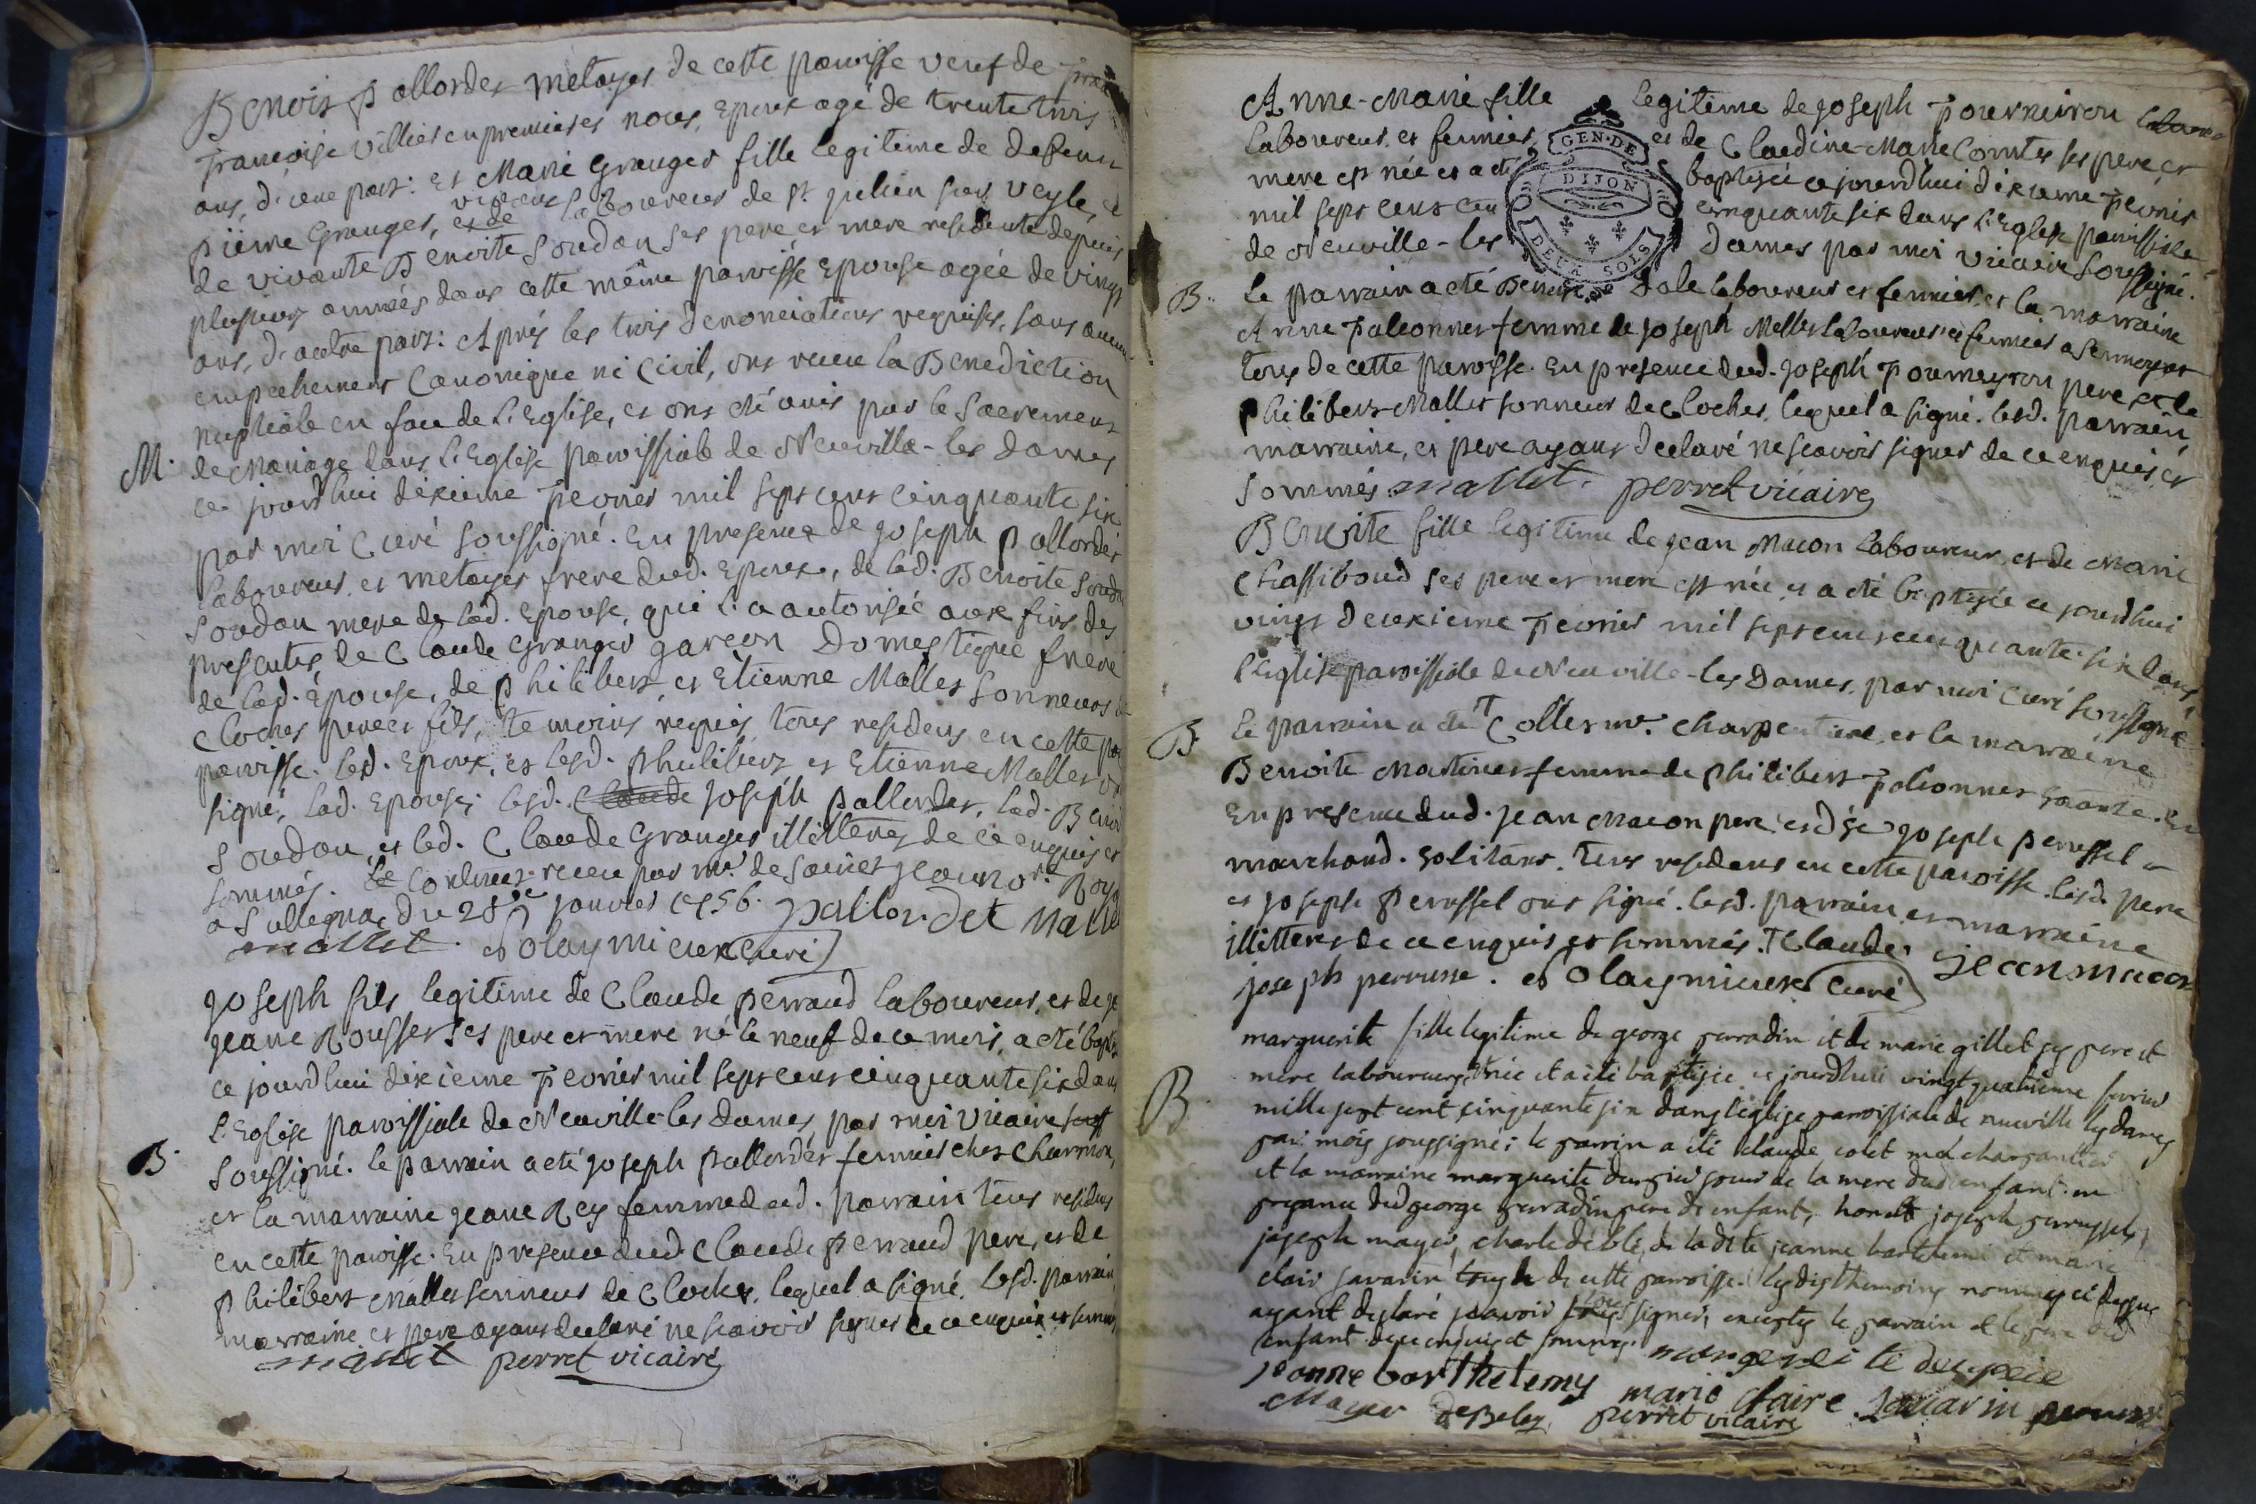 Benoit Pallordet metayer de cette paroisse veuf de
françoise Villier en premieres noces, Epoux agé de trente trois
ans, d'une part: et Marie Granger fille legitime de defunt
pierre Granger, vivant laboureur de St julien sur Veyle, et
et de
de vivante Benoite Soudan ses pere et mere residente depuis
plusieurs années dans cette même paroisse Epouse agée de vingt
ans, d'autre part: Après les trois denonciations requises, sans aucun
empechement Canonique ni Civil, ont receu la Benediction
nuptiale en face de L'Eglise, et ont été unis par le Sacrement
M. de Mariage dans L'Eglise paroissiale de Neuville-les Dames
ce jourd'hui dixieme Fevrier mil sept cent cinquante six
par moi Curé soussigné. En presence de joseph Pallordet
laboureur et metayer frere dud. Epoux, de lad. Benoite Soudan
Soudan mere de lad. Epouse, qui l'a autorisée aux fins des
presentes, de Claude Granger garçon Domestique frere
de lad. Epouse, de philibert et Etienne Mallet Sonneurs de
Cloches pere et fils, temoins requis tous residens en cette
paroisse. led. Epoux, et lesd. philibert et Etienne Mallet ont
signé, lad. Epouse, lesd. Claude joseph pallordet, lad. Benoi
Soudan, et led. Claude Granger illitterés de ce enquis et
sommés. Le Contract receu par Mr. de Saint jean no.re Roy
a Sullegnat du 28e janvier 1756. pallordet Mallet
mallet Polaymieux Curé
joseph fils legitime de Claude perraud laboureur, et de
jeane Rousset ses pere et mere né le neuf de ce mois, a été bapt
ce jourd'hui dixieme Fevrier mil sept cent cinquante six dans
L'Eglise paroissiale de Neuville-les Dames, par moi Vicaire
B. soussigné. le parrain a été joseph pallordet fermier chez Charmon,
et la marraine jeane Rey femme dud. parrain tous residens
en cette paroisse. En presence dud. Claude perraud pere, et de
philibert Mallet sonneur de Cloches, lequel a signé. Lesd. parrain
marraine et pere ayant declaré ne scavoir signer de ce enquis et sommés
mallet perret vicaire
Anne-Marie fille legitime de joseph Fournirou
laboureur et fermier et de Claudine-Marie Comte ses pere et
mere est née et a été baptisée ce jourd'hui dixieme Fevrier
mil sept cent cinquante six dans L'Eglise paroissiale
de Neuville-les Dames par moi Vicaire soussigné.
GEN. DE
DIJON
DEUX SOLS
B. Le parrain a été Benoit Dale laboureur et fermier et la marraine
Anne Falconnet femme de joseph Mellet laboureur et fermier a
tous de cette paroisse. En presence dud. joseph Fourneyron pere, et de
philibert Mallet sonneur de Cloches, lequel a signé. lesd. parrain
marraine, et pere ayant declaré ne scavoir signer de ce enquis et
sommés. mallet. perret vicaire
Benoite fille legitime de jean Macon laboureur, et de Marie
Chassiboud ses pere et mere est née et a été baptisée ce jourd'hui
vingt deuxieme Fevrier mil sept cent cinquante-six dans
L'Eglise paroissiale de Neuville-les Dames, par moi Curé soussigné
B. le parrain a été T Collet me. Charpentier, et la marraine
Benoite Martinet femme de philibert Falconnet
En presence dud. jean Macon pere et de Sr joseph perussel
marchand. tous residens en cette paroisse. lesd. pere
et joseph Perussel ont signé. lesd. parrain et marraine
illitterés de ce enquis et sommés. T Claude. jean macon
joseph perrusse. Polaymieux Curé
marguerite fille legitime de george parradin et de marie gillet ses pere et
mere laboureurs, est née et a été baptisée ce jourd'hui vingt quatrieme fevrier
B. mille sept cent cinquante six dans l'eglise parroissiale de neuville les dames
par mois soussigné: le parrin a été claude colet me charpantier
et la marraine marguerite sœur de la mere dud. enfant. en
presence dud george parradin pere de enfant, honet joseph perrussel,
joseph mayer, charle de blé, de la dite jeanne bartelemi et marie
clair savarin tous de cette parroisse. les dis themoins nommes ci dessus
ayant declaré scavoir signer, excepter le parrain et le pere dud
enfant de ce enquis et sommes.
jeanne barthelemy marie claire Savarin
Mayer perret vicaire